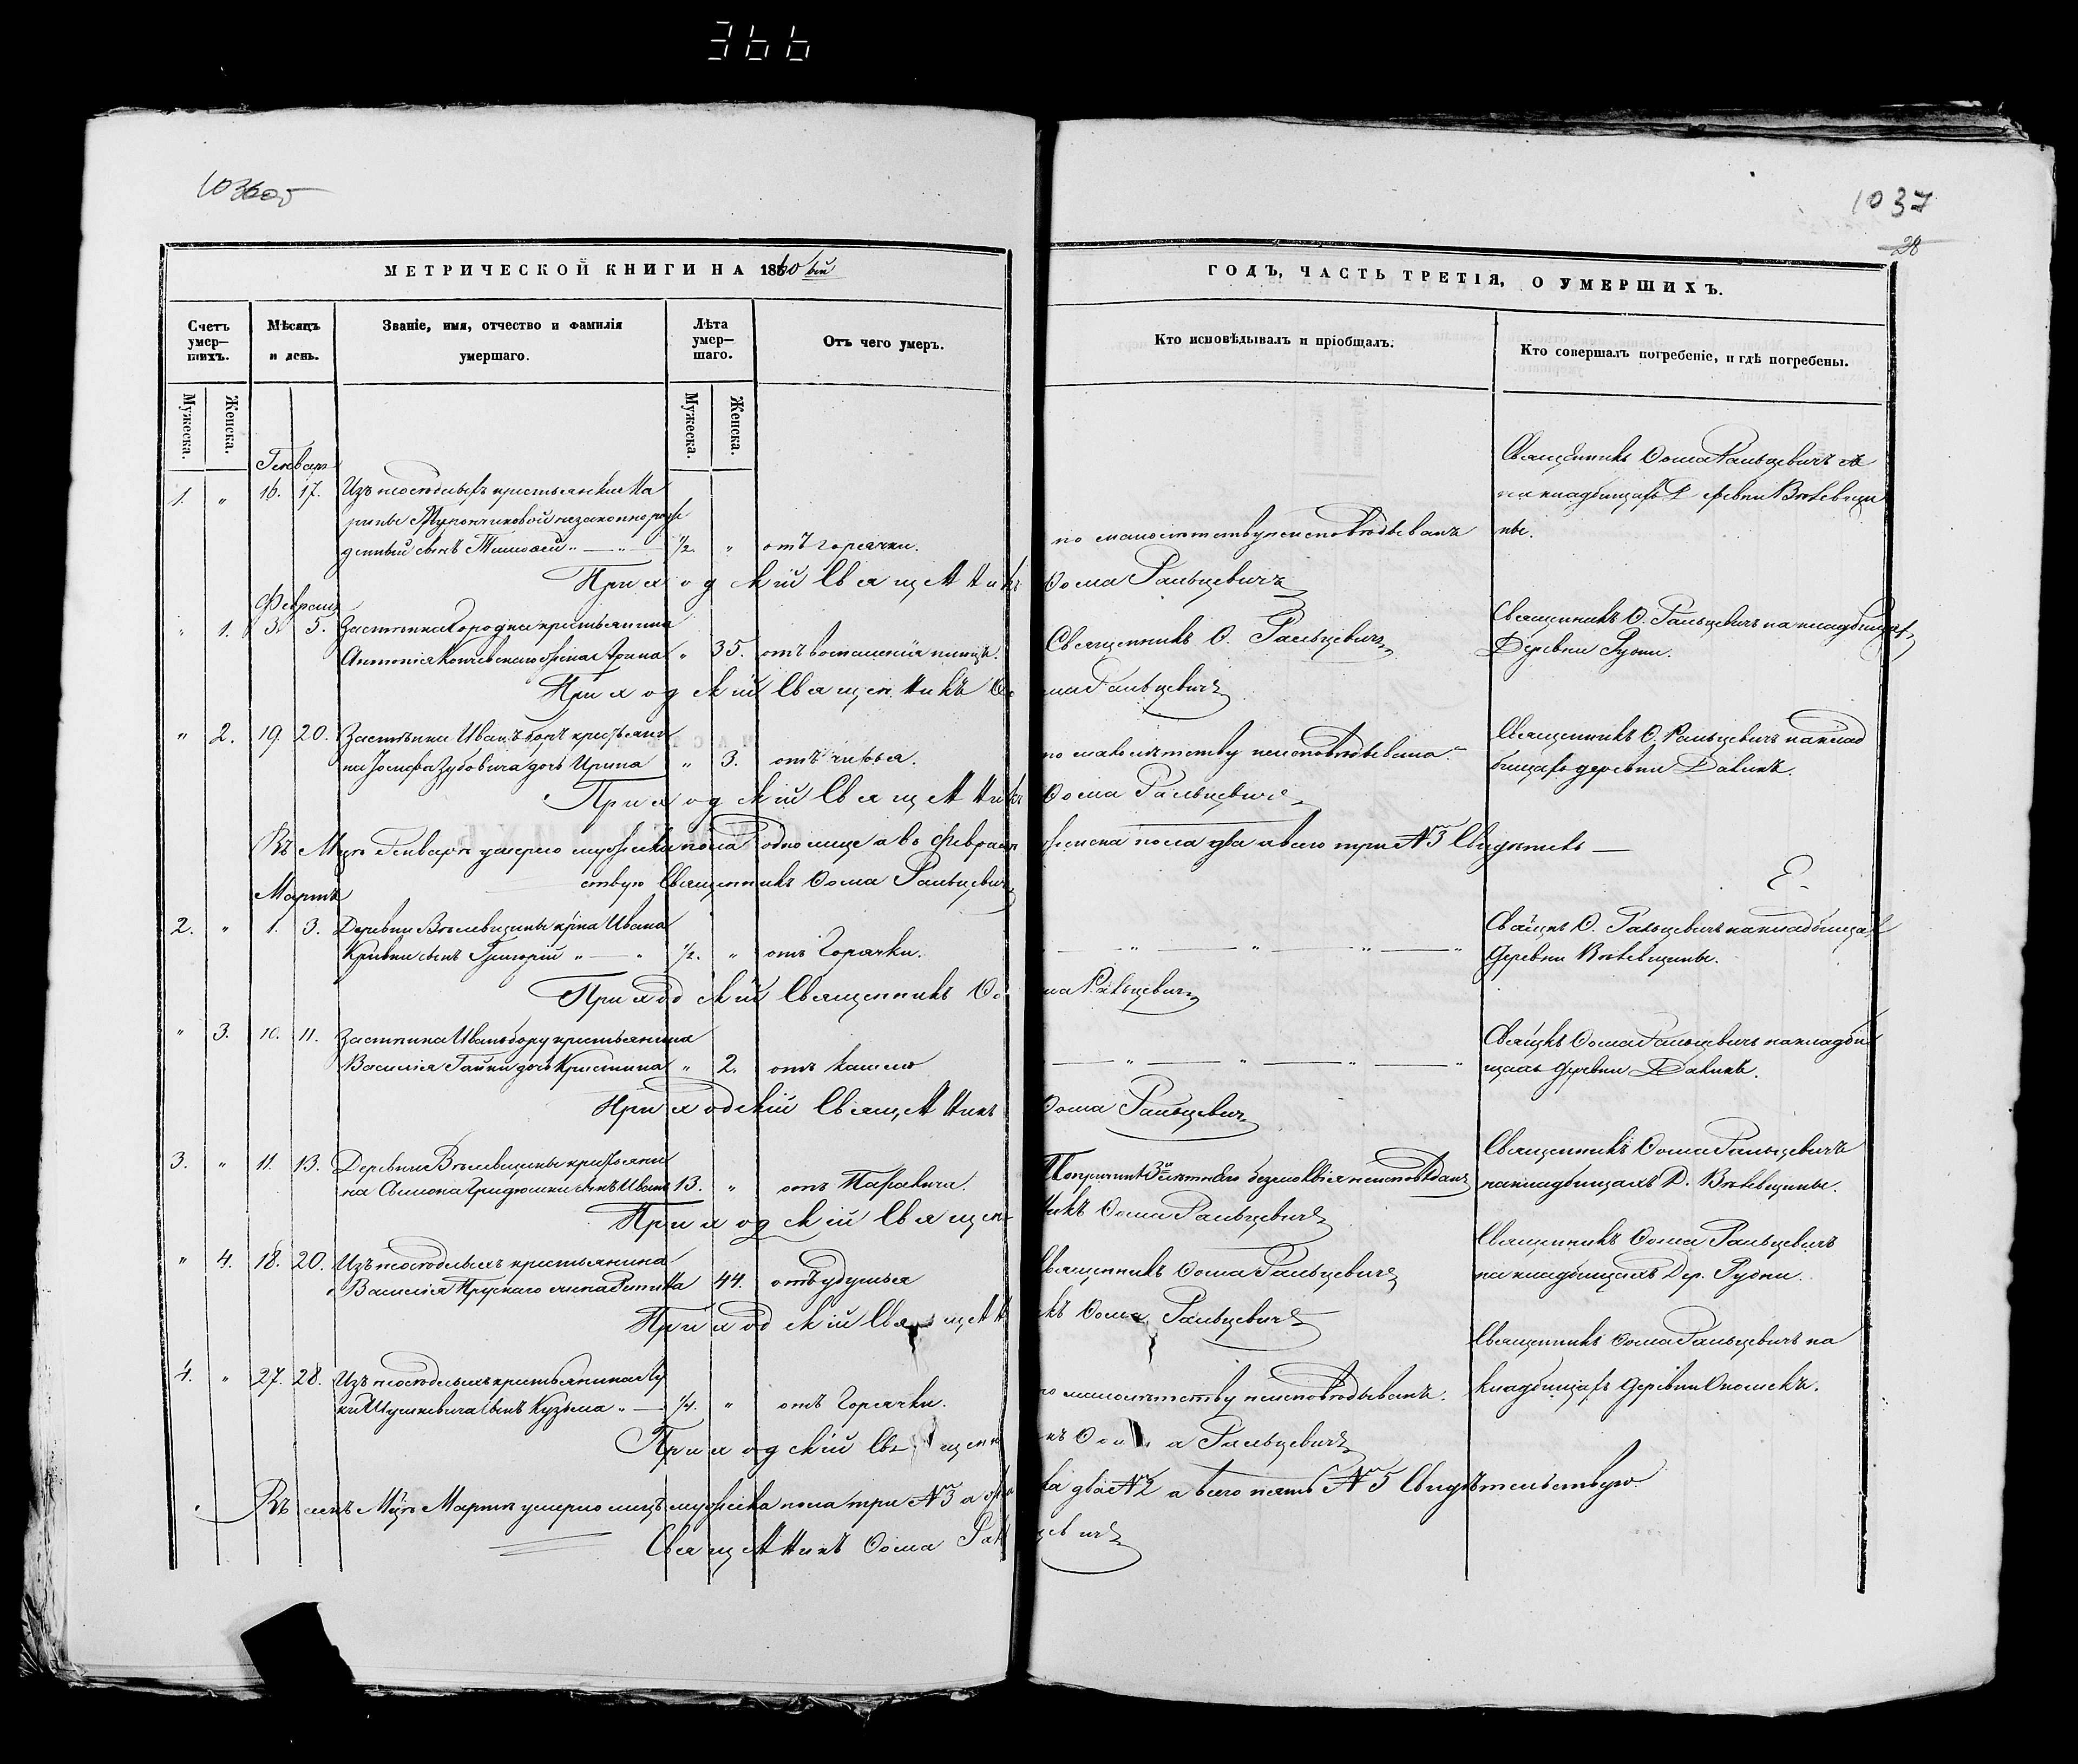 366
1037
28
МЕТРИЧЕСКОЙ КНИГИ НА 1860 ый
ГОДЪ, ЧАСТЬ ТРЕТІЯ, О УМЕРШИХЪ.
Счетъ умер—шихъ.
Мѣсяцъ и день.
Званіе, имя, отчество и фамилія умершаго.
Лѣта умер—шаго.
Отъ чего умеръ.
Кто исповѣдывалъ и пріобщалъ.
Кто совершалъ погребеніе, и гдѣ погребены.
Мужеска.
Женска.
Мужеска.
Женска.
Генварь
1. " 16. 17. Изъ посѣдлыхъ крестьянки Ма
рины незаконно рож
денный сынъ Тимоѳей " — " — 1/2. " отъ горячки.
по малолѣтству неисповѣдыванъ
Священникъ Ѳома Ральцевичъ
на кладбищахъ Д
ны.
Приходскій Священникъ Ѳома Ральцевичъ
Февраль
" 1. 3. 5. Застѣнка Городка крестьянина
Антонія жена Арина " 35. отъ воспаленія
Священникъ Ѳ. Ральцевичъ
Священникъ Ѳ. Ральцевичъ на кладбищахъ
Деревни Рудни.
Приходскій Священникъ Ѳома Ральцевичъ
" 2. 19. 20. Застѣнка Иванъ боръ крестьяни
на Іосифа Зубовича дочь Ирина " 3. отъ
по малолѣтству неисповѣдывана.
Священникъ Ѳ. Ральцевичъ на клад
бищахъ деревни Далинъ.
Приходскій Священникъ Ѳома Ральцевичъ
Въ Мцѣ Генварѣ умерло мужеска пола одно лице а въ Февралѣ женска пола два а всего три № 3 Свидѣтель—
ствую Священникъ Ѳома Ральцевичъ
Мартъ
2. " 1. 3. Деревни Вѣлевщины кр\на Ивана
Кривки сынъ Григорій " — " 1/2. " отъ Горячки.
— " — " — " — "
Свящ\нъ Ѳ. Ральцевичъ на кладбищахъ
Деревни Вѣлевщины.
Приходскій Священникъ Ѳома Ральцевичъ
" 3. 10. 11. Застѣнка Иванъ бору крестьянина
Василія Гайки дочь Кристина " 2. отъ кашлю
— " — " — " — "
Свящ\къ Ѳома Ральцевичъ на кладби
щахъ деревни Далинъ.
Приходскій Священникъ Ѳома Ральцевичъ
3. " 11. 13. Деревни Вѣлевщины крестьяни
на Симона Гридюшки сынъ Иванъ 13. " отъ Паралича.
По причинѣ 3х лѣтняго безмолвія неисповѣданъ
Священникъ Ѳома Ральцевичъ
на кладбищахъ Д. Вѣлевщины.
Приходскій Священникъ Ѳома Ральцевичъ
" 4. 18. 20. Изъ посѣдлыхъ крестьянина
Василія Прускаго жена 44. отъ удушья
Священникъ Ѳома Ральцевичъ
Священникъ Ѳома Ральцевичъ
на кладбищахъ Дер. Рудни.
Приходскій Священникъ Ѳома Ральцевичъ
4. " 27. 28. Изъ посѣдлыхъ крестьянина Лу
ки Шушкевича сынъ Кузьма " — 1/4. " отъ Горячки.
по малолѣтству неисповѣдыванъ.
Священникъ Ѳома Ральцевичъ на
кладбищахъ деревни
Приходскій Священникъ Ѳома Ральцевичъ
Въ семъ Мцѣ Мартѣ умерло лицъ мужеска пола три № 3 а женска два № 2 а всего пять № 5 Свидѣтельствую.
Священникъ Ѳома Ральцевичъ